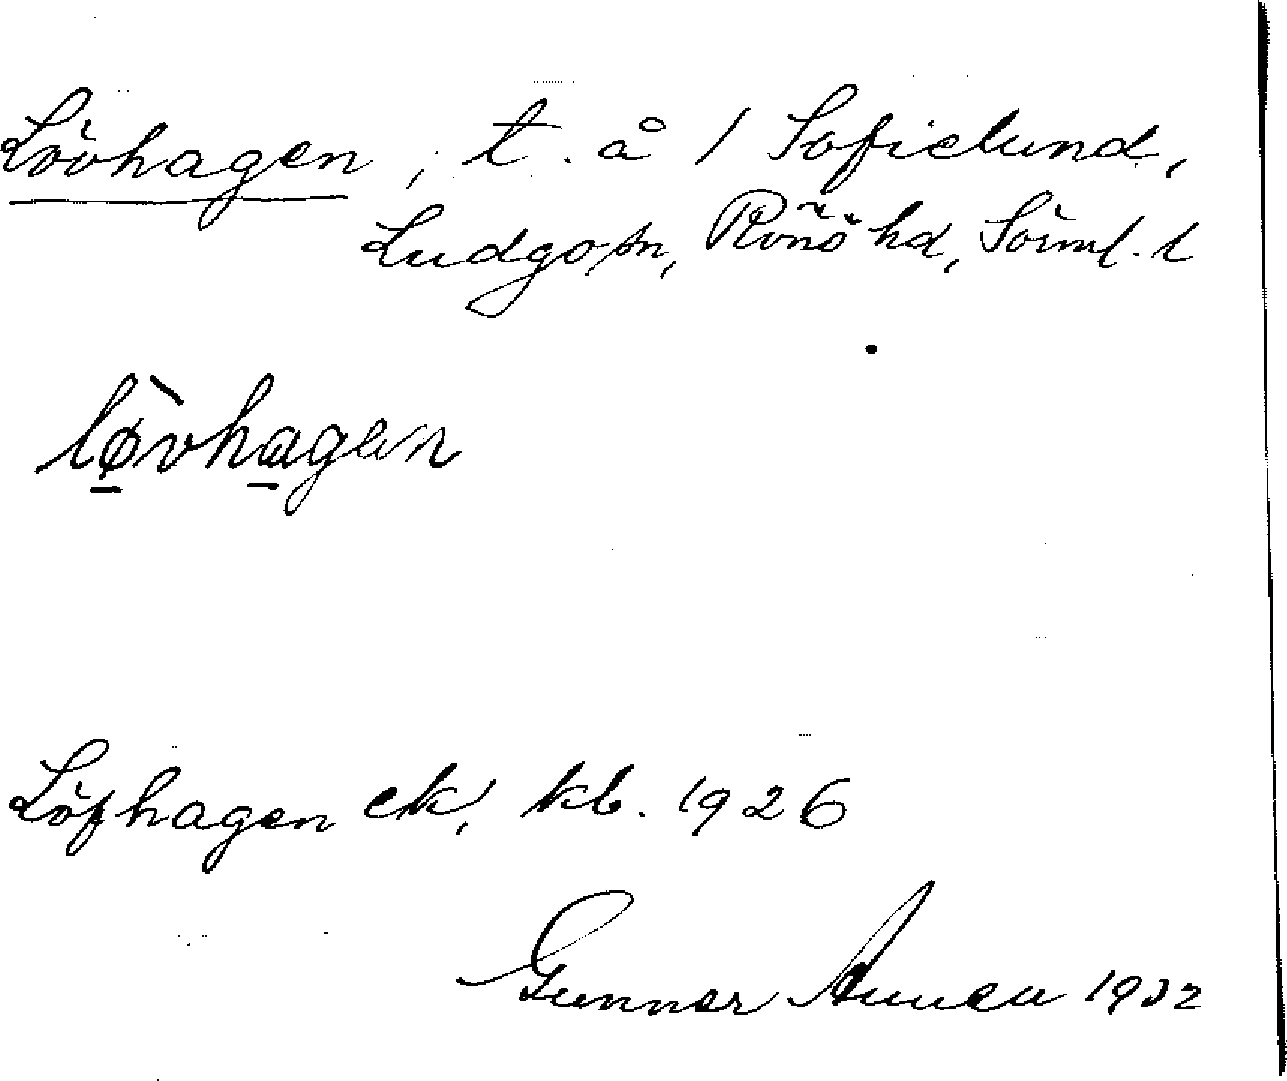 Lövhagen, t. å / Sofielund,
Ludgo sn, Rönö hd, Sörml. l
lø̱̀vha̱gen
Löfhagen ek, kb. 1926
Gunnar 1932